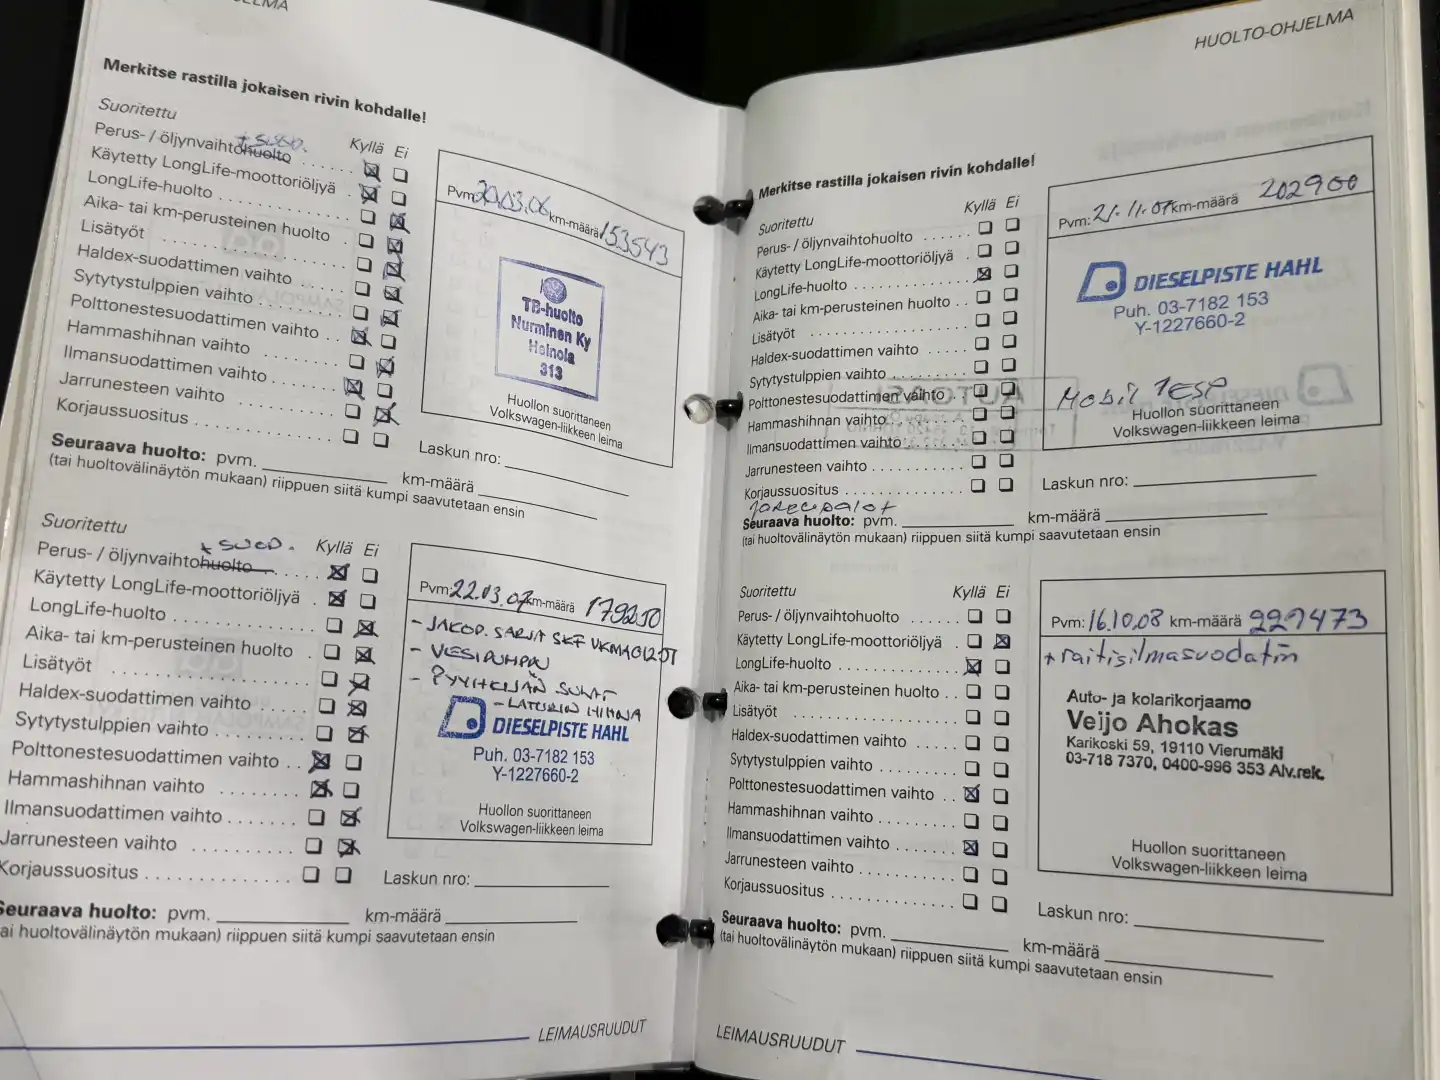 HUOLTO-OHJELMA
Merkitse rastilla jokaisen rivin kohdalle!
Suoritettu
Kyllä Ei
Perus- / öljynvaihtohuolto
Käytetty LongLife-moottoriöljyä
LongLife-huolto
Aika- tai km-perusteinen huolto
Lisätyöt
Haldex-suodattimen vaihto
Sytytystulppien vaihto
Polttonestesuodattimen vaihto
Hammashihnan vaihto
Ilmansuodattimen vaihto
Jarrunesteen vaihto
Korjaussuositus
Pvm: 20.03.06 km-määrä 153543
TB-huolto
Nurminen Ky
Heinola
313
Huollon suorittaneen
Volkswagen-liikkeen leima
Laskun nro:
Seuraava huolto: pvm. km-määrä
(tai huoltovälinäytön mukaan) riippuen siitä kumpi saavutetaan ensin
Suoritettu
+ SUOD. Kyllä Ei
Perus- / öljynvaihtohuolto
Käytetty LongLife-moottoriöljyä
LongLife-huolto
Aika- tai km-perusteinen huolto
Lisätyöt
Haldex-suodattimen vaihto
Sytytystulppien vaihto
Polttonestesuodattimen vaihto
Hammashihnan vaihto
Ilmansuodattimen vaihto
Jarrunesteen vaihto
Korjaussuositus
Pvm: 22.03.07 km-määrä 179250
- JAKOP. SARJA SKF VKMA01207
- VESIPUMPPU
- PYYHKIJÄN SULAT
- LATURIN HIHNA
DIESELPISTE HAHL
Puh. 03-7182 153
Y-1227660-2
Huollon suorittaneen
Volkswagen-liikkeen leima
Laskun nro:
Seuraava huolto: pvm. km-määrä
(tai huoltovälinäytön mukaan) riippuen siitä kumpi saavutetaan ensin
LEIMAUSRUUDUT
HUOLTO-OHJELMA
Merkitse rastilla jokaisen rivin kohdalle!
Suoritettu
Kyllä Ei
Perus- / öljynvaihtohuolto
Käytetty LongLife-moottoriöljyä
LongLife-huolto
Aika- tai km-perusteinen huolto
Lisätyöt
Haldex-suodattimen vaihto
Sytytystulppien vaihto
Polttonestesuodattimen vaihto
Hammashihnan vaihto
Ilmansuodattimen vaihto
Jarrunesteen vaihto
Korjaussuositus
Pvm: 21.11.07 km-määrä 202900
DIESELPISTE HAHL
Puh. 03-7182 153
Y-1227660-2
Mobil 1 ESP
Huollon suorittaneen
Volkswagen-liikkeen leima
Laskun nro:
Seuraava huolto: pvm. km-määrä
(tai huoltovälinäytön mukaan) riippuen siitä kumpi saavutetaan ensin
Suoritettu
Kyllä Ei
Perus- / öljynvaihtohuolto
Käytetty LongLife-moottoriöljyä
LongLife-huolto
Aika- tai km-perusteinen huolto
Lisätyöt
Haldex-suodattimen vaihto
Sytytystulppien vaihto
Polttonestesuodattimen vaihto
Hammashihnan vaihto
Ilmansuodattimen vaihto
Jarrunesteen vaihto
Korjaussuositus
Pvm: 16.10.08 km-määrä 227473
+ raitisilmasuodatin
Auto- ja kolarikorjaamo
Veijo Ahokas
Karikoski 59, 19110 Vierumäki
03-718 7370, 0400-996 353 Alv.rek.
Huollon suorittaneen
Volkswagen-liikkeen leima
Laskun nro:
Seuraava huolto: pvm. km-määrä
(tai huoltovälinäytön mukaan) riippuen siitä kumpi saavutetaan ensin
LEIMAUSRUUDUT